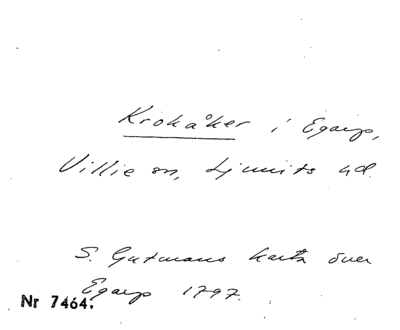 Krokåker i Egarp,
Villie sn, Ljunits hd.
S. Gutmans karta över
Egarp 1797.
Nr 7464.